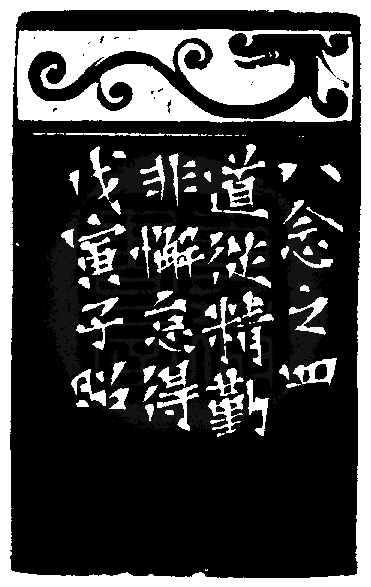 八念之四
道従精勤
非懈怠得
戊寅子昭